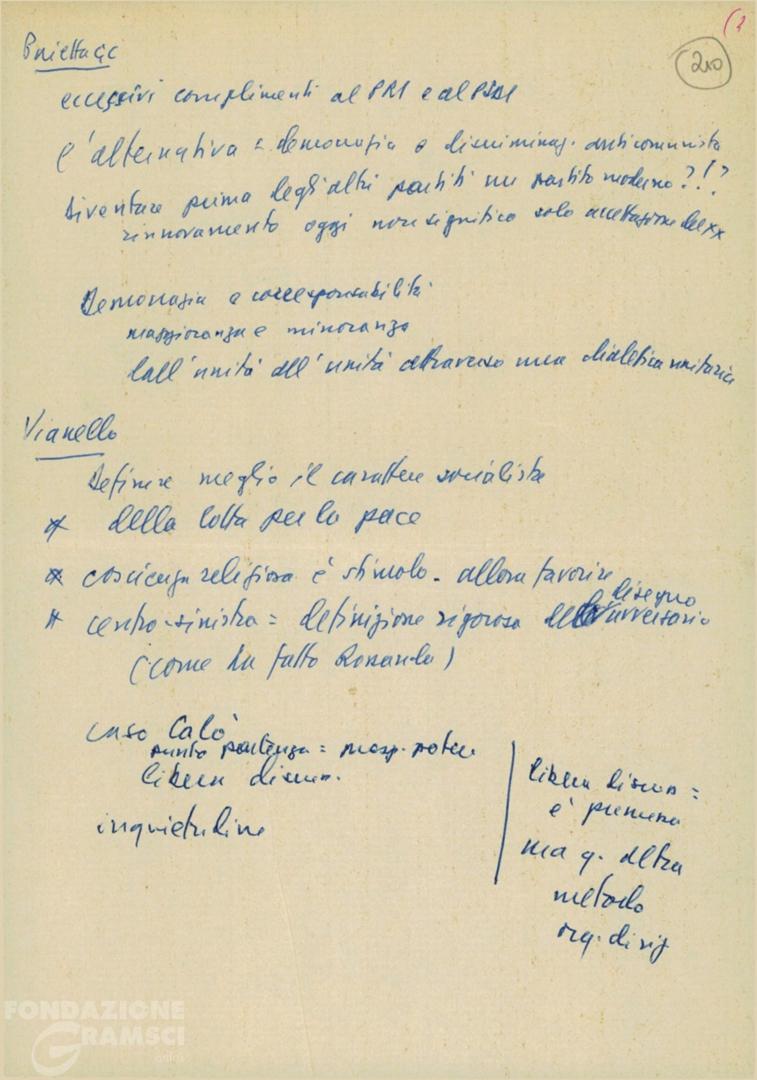 (2
210
eccessivi complimenti al PRI e al PSDI
l'alternativa = democrazia o discriminaz. anticomunista
diventare prima degli altri partiti un partito moderno?!?
rinnovamento oggi non significa solo accettazione del xx
Democrazia e corresponsabilità
maggioranza e minoranza
dall'unità all'unità attraverso una dialettica unitaria
Vianello
Definire meglio il carattere socialista
* della lotta per la pace
* coscienza religiosa è stimolo. allora favorire
* centro-sinistra = definizione rigorosa del disegno avversario
(come ha fatto Rossanda)
caso Calò
punto partenza =
libera discus.
inquietudine
libera discus =
è premessa
ma q. altra
metodo
org. dirig
FONDAZIONE
GRAMSCI